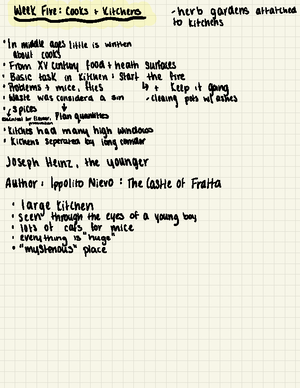 Week Five: Cooks + Kitchens
- herb gardens attatched
to kitchens
• In middle ages little is written
about cooks
• From XV century food + heath surfaces
• Basic task in Kitchen: Start the fire
↳ + Keep it going
• Problems + mice, flies
• Waste was considerd a sin
- cleaning pots w/ ashes
• spices
Plan quantities
• Kitches had many high windows
• Kichens seperated by long corridor
Joseph Heinz, the younger
Author: Ippolito Nievo: The Castle of Fratta
• large kitchen
• seen through the eyes of a young boy
• lots of cats for mice
• everything is "huge"
• "mysterious" place